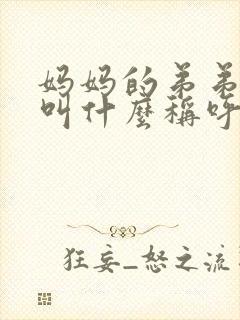 妈妈的弟弟
叫什麼稱呼
狂妄_怒之流